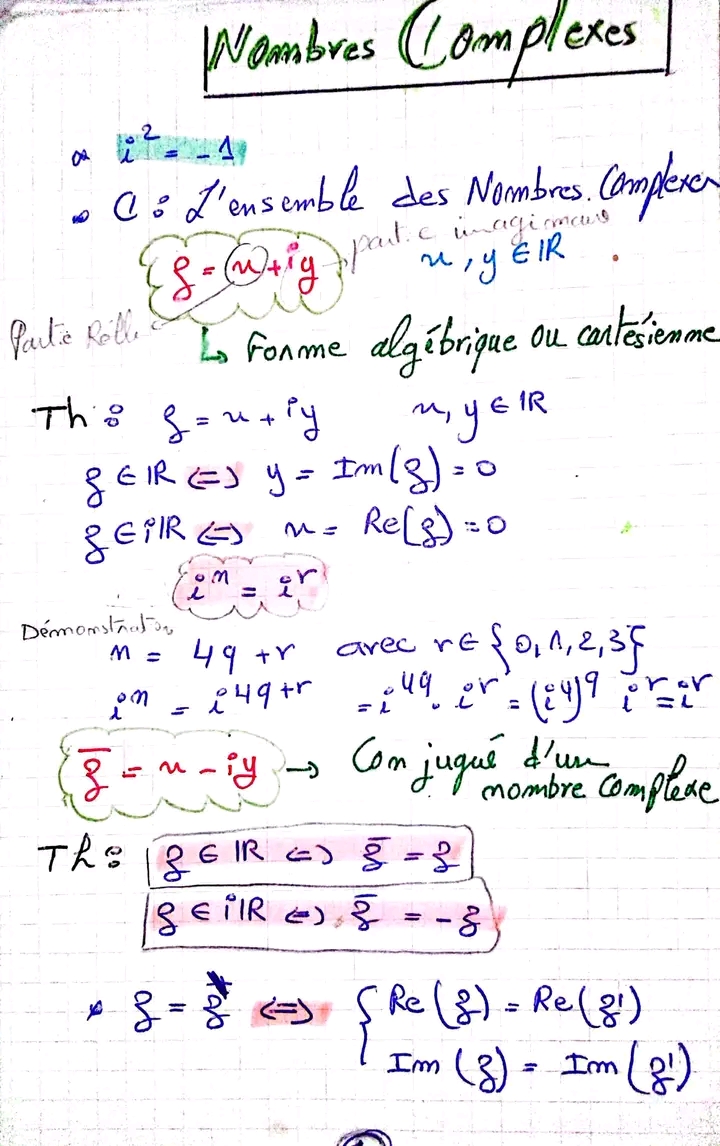 Nombres Complexes
i² = -1
C : L'ensemble des Nombres Complexes
z = x + iy partie imaginaire x, y ∈ IR
Partie Réelle
↳ Forme algébrique ou cartésienne
Th : z = x + iy x, y ∈ IR
z ∈ IR <=> y = Im(z) = 0
z ∈ iIR <=> x = Re(z) = 0
iⁿ = iʳ
Démonstration
n = 4q + r avec r ∈ {0, 1, 2, 3}
iⁿ = i^{4q+r} = i^{4q} . iʳ = (i⁴)^q iʳ = iʳ
z̄ = x - iy → Conjugué d'un
nombre complexe
Th : z ∈ IR <=> z̄ = z
z ∈ iIR <=> z̄ = -z
z = z' <=> { Re(z) = Re(z')
Im(z) = Im(z')